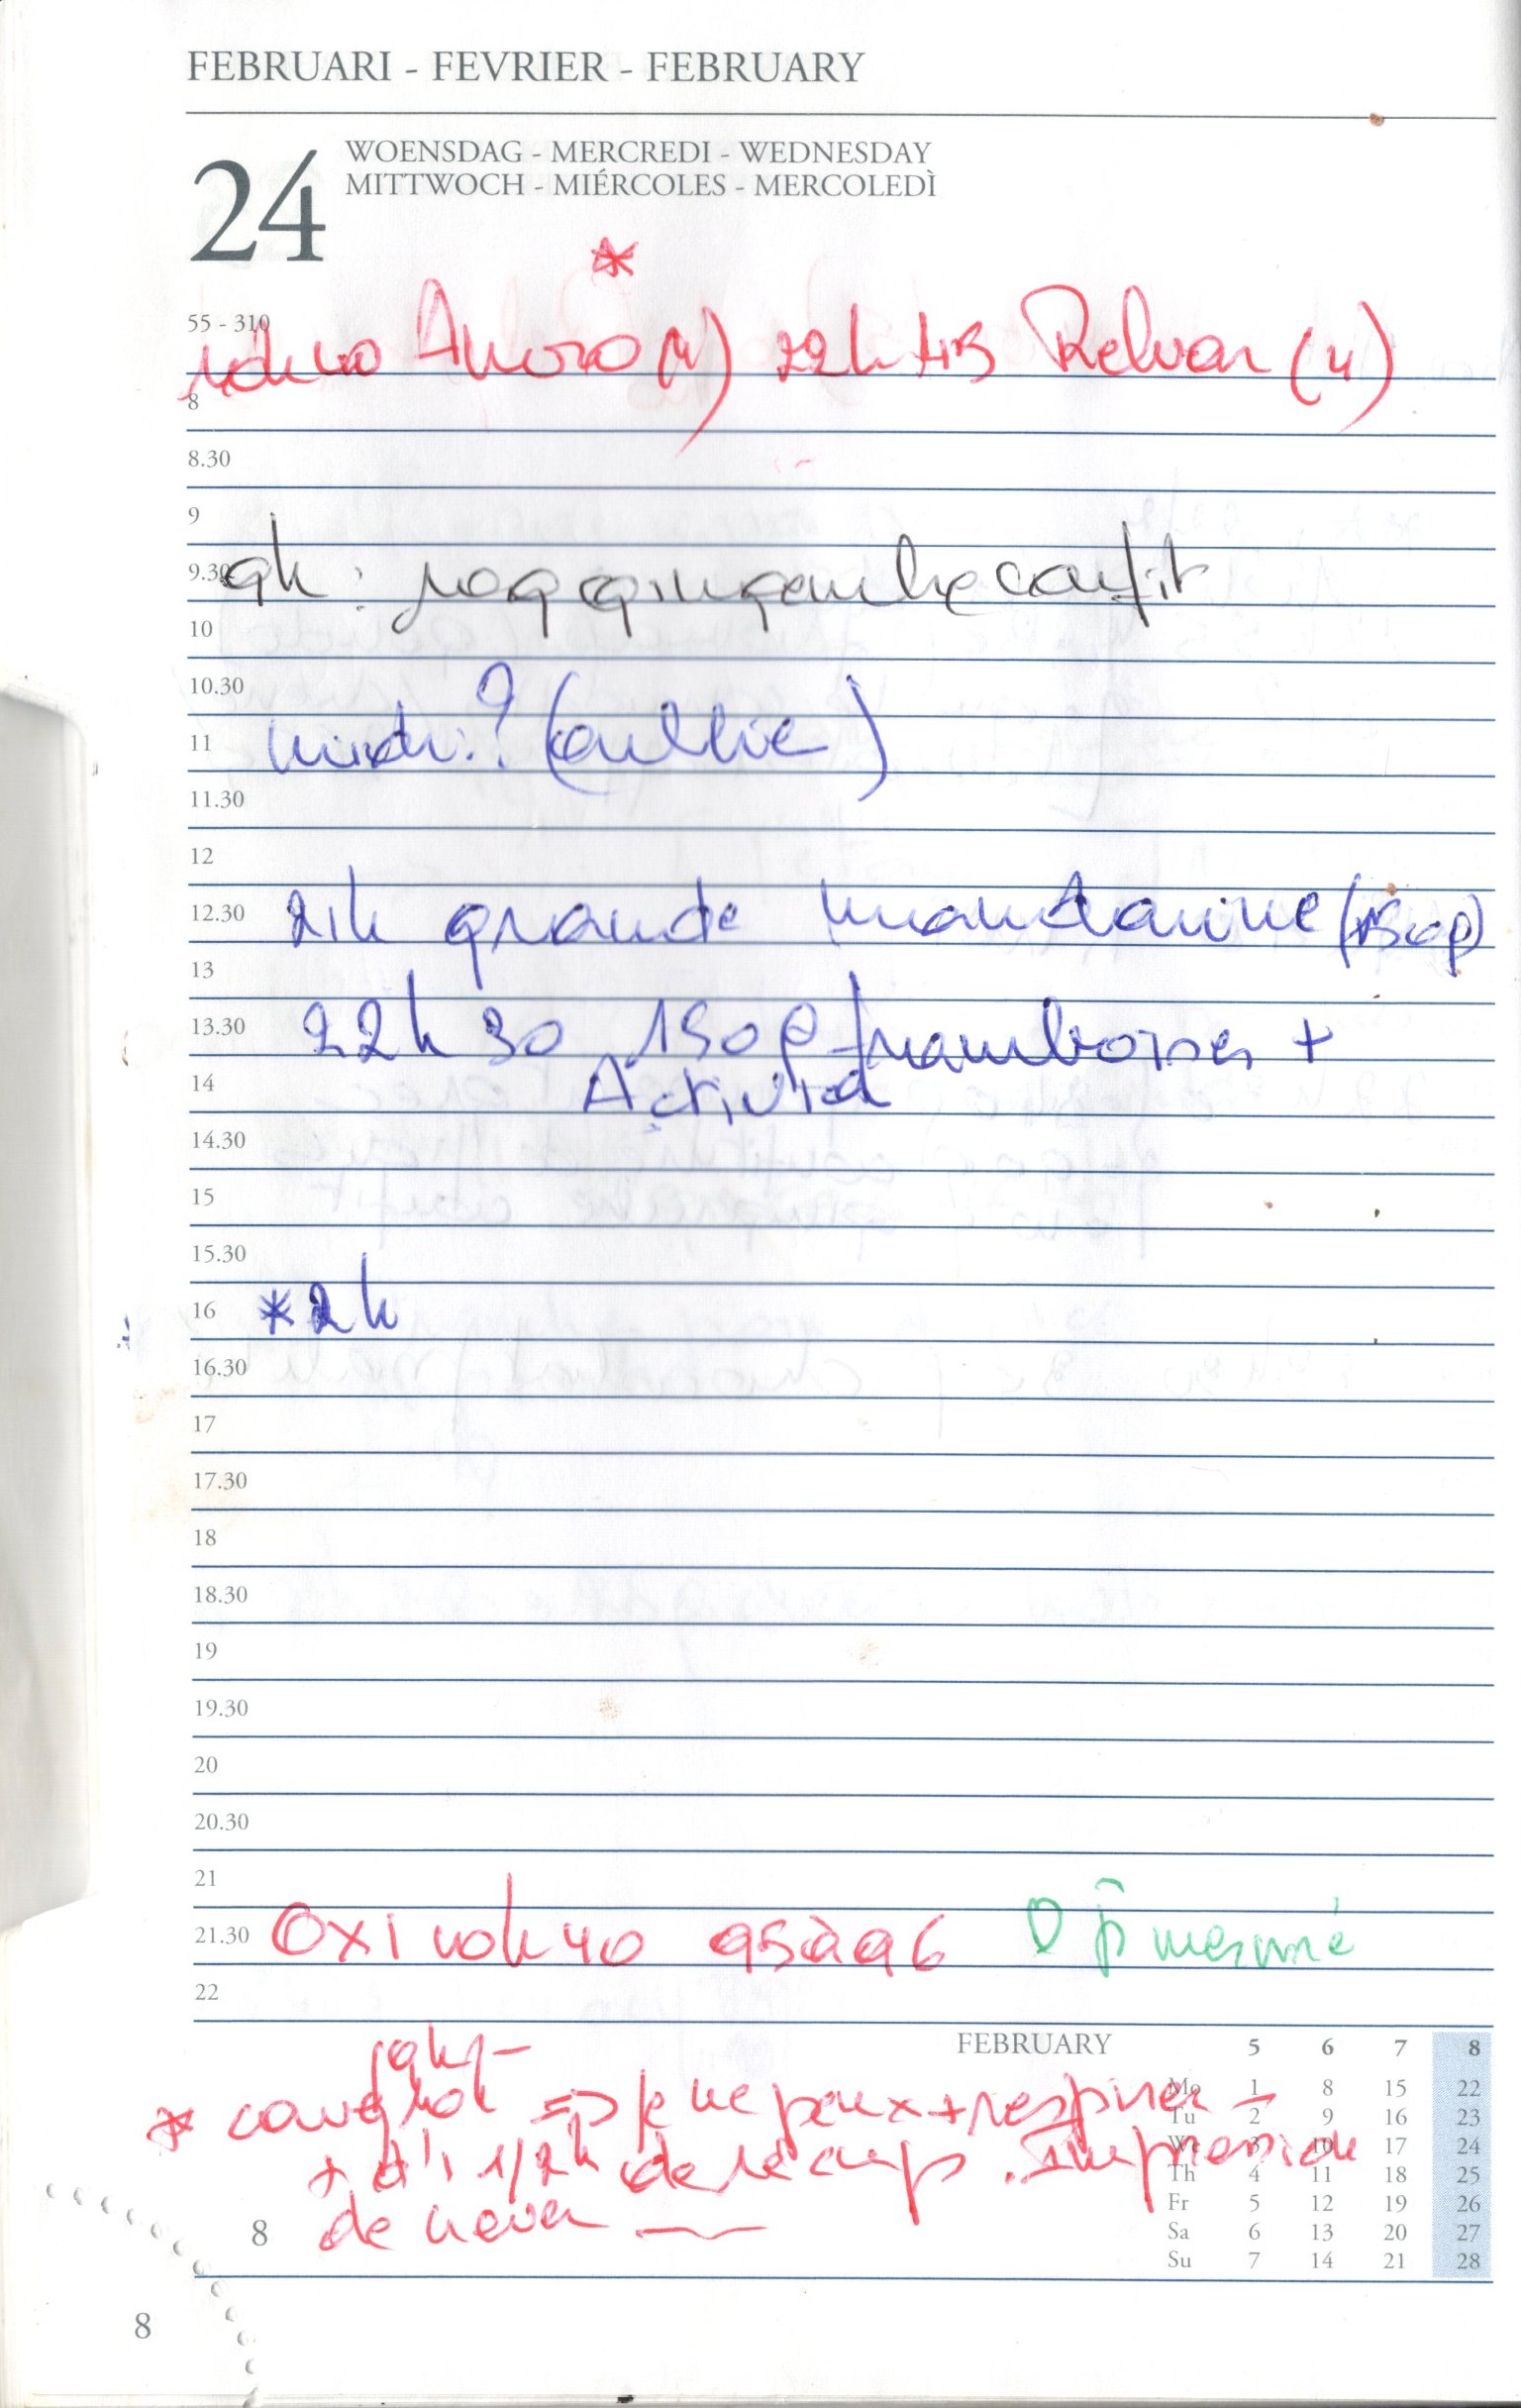 FEBRUARI - FEVRIER - FEBRUARY
24
WOENSDAG - MERCREDI - WEDNESDAY
MITTWOCH - MIÉRCOLES - MERCOLEDÌ
*
55 - 310
22h Relvar (4)
8
8.30
9
9h : 70g gingembre confit
9.30
10
10.30
midi : ? (oublié)
11
11.30
12
21h grande mandarine
12.30
13
22h30 150g framboises +
13.30
Activia
14
14.30
15
15.30
* 2h
16
16.30
17
17.30
18
18.30
19
19.30
20
20.30
21
Oxi 95 à 96
21.30
22
FEBRUARY 5 6 7 8
Mo 1 8 15 22
Tu 2 9 16 23
We 3 10 17 24
Th 4 11 18 25
Fr 5 12 19 26
Sa 6 13 20 27
Su 7 14 21 28
* => je ne peux + respirer -
1/2h de Impression
de
8
8